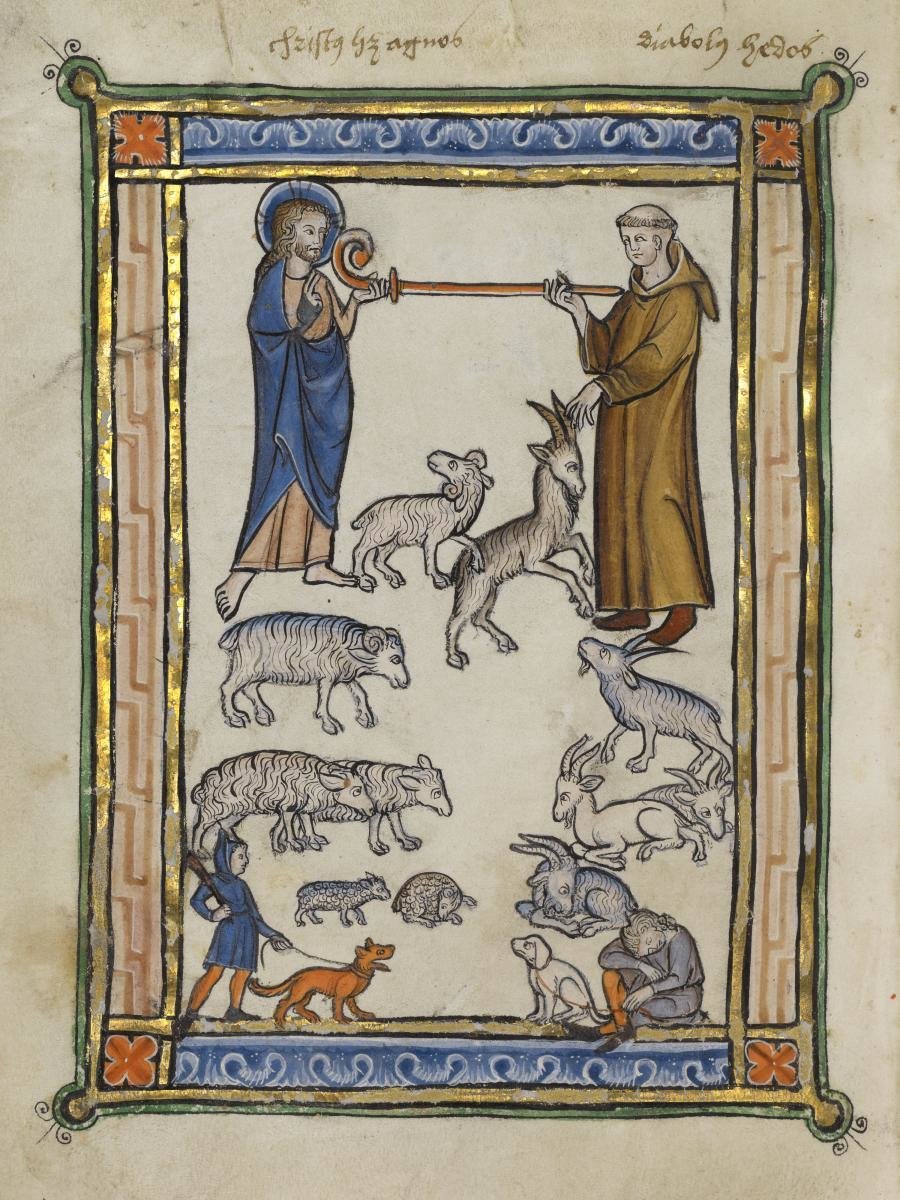 christꝰ hꝫ agnos diabolꝰ hedos